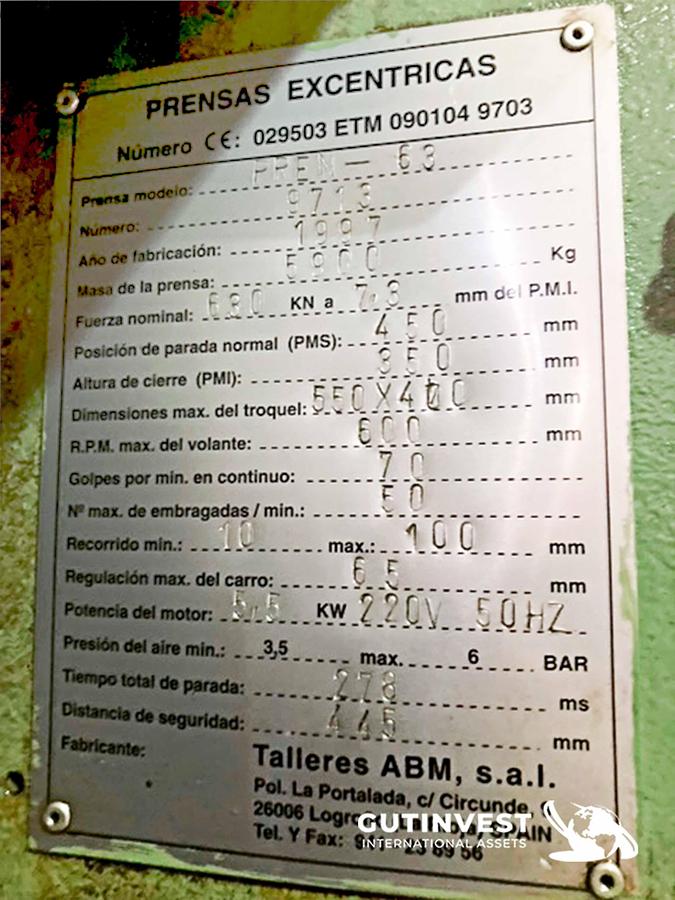 PRENSAS EXCENTRICAS
Número CE: 029503 ETM 090104 9703
Prensa modelo: PREM-63
Número: 9713
Año de fabricación: 1997
Masa de la prensa: 5900 Kg
Fuerza nominal: 630 KN a 7,3 mm del P.M.I.
Posición de parada normal (PMS): 450 mm
Altura de cierre (PMI): 350 mm
Dimensiones max. del troquel: 550X400 mm
R.P.M. max. del volante: 600 mm
Golpes por min. en continuo: 70
Nº max. de embragadas / min.: 50
Recorrido min.: 10 max.: 100 mm
Regulación max. del carro: 65 mm
Potencia del motor: 5,5 KW 220V 50HZ
Presión del aire min.: 3,5 max. 6 BAR
Tiempo total de parada: 278 ms
Distancia de seguridad: 445 mm
Fabricante: Talleres ABM, s.a.l.
Pol. La Portalada, c/ Circunde,
26006 SPAIN
Tel. Y Fax: 56
GUTINVEST
INTERNATIONAL ASSETS